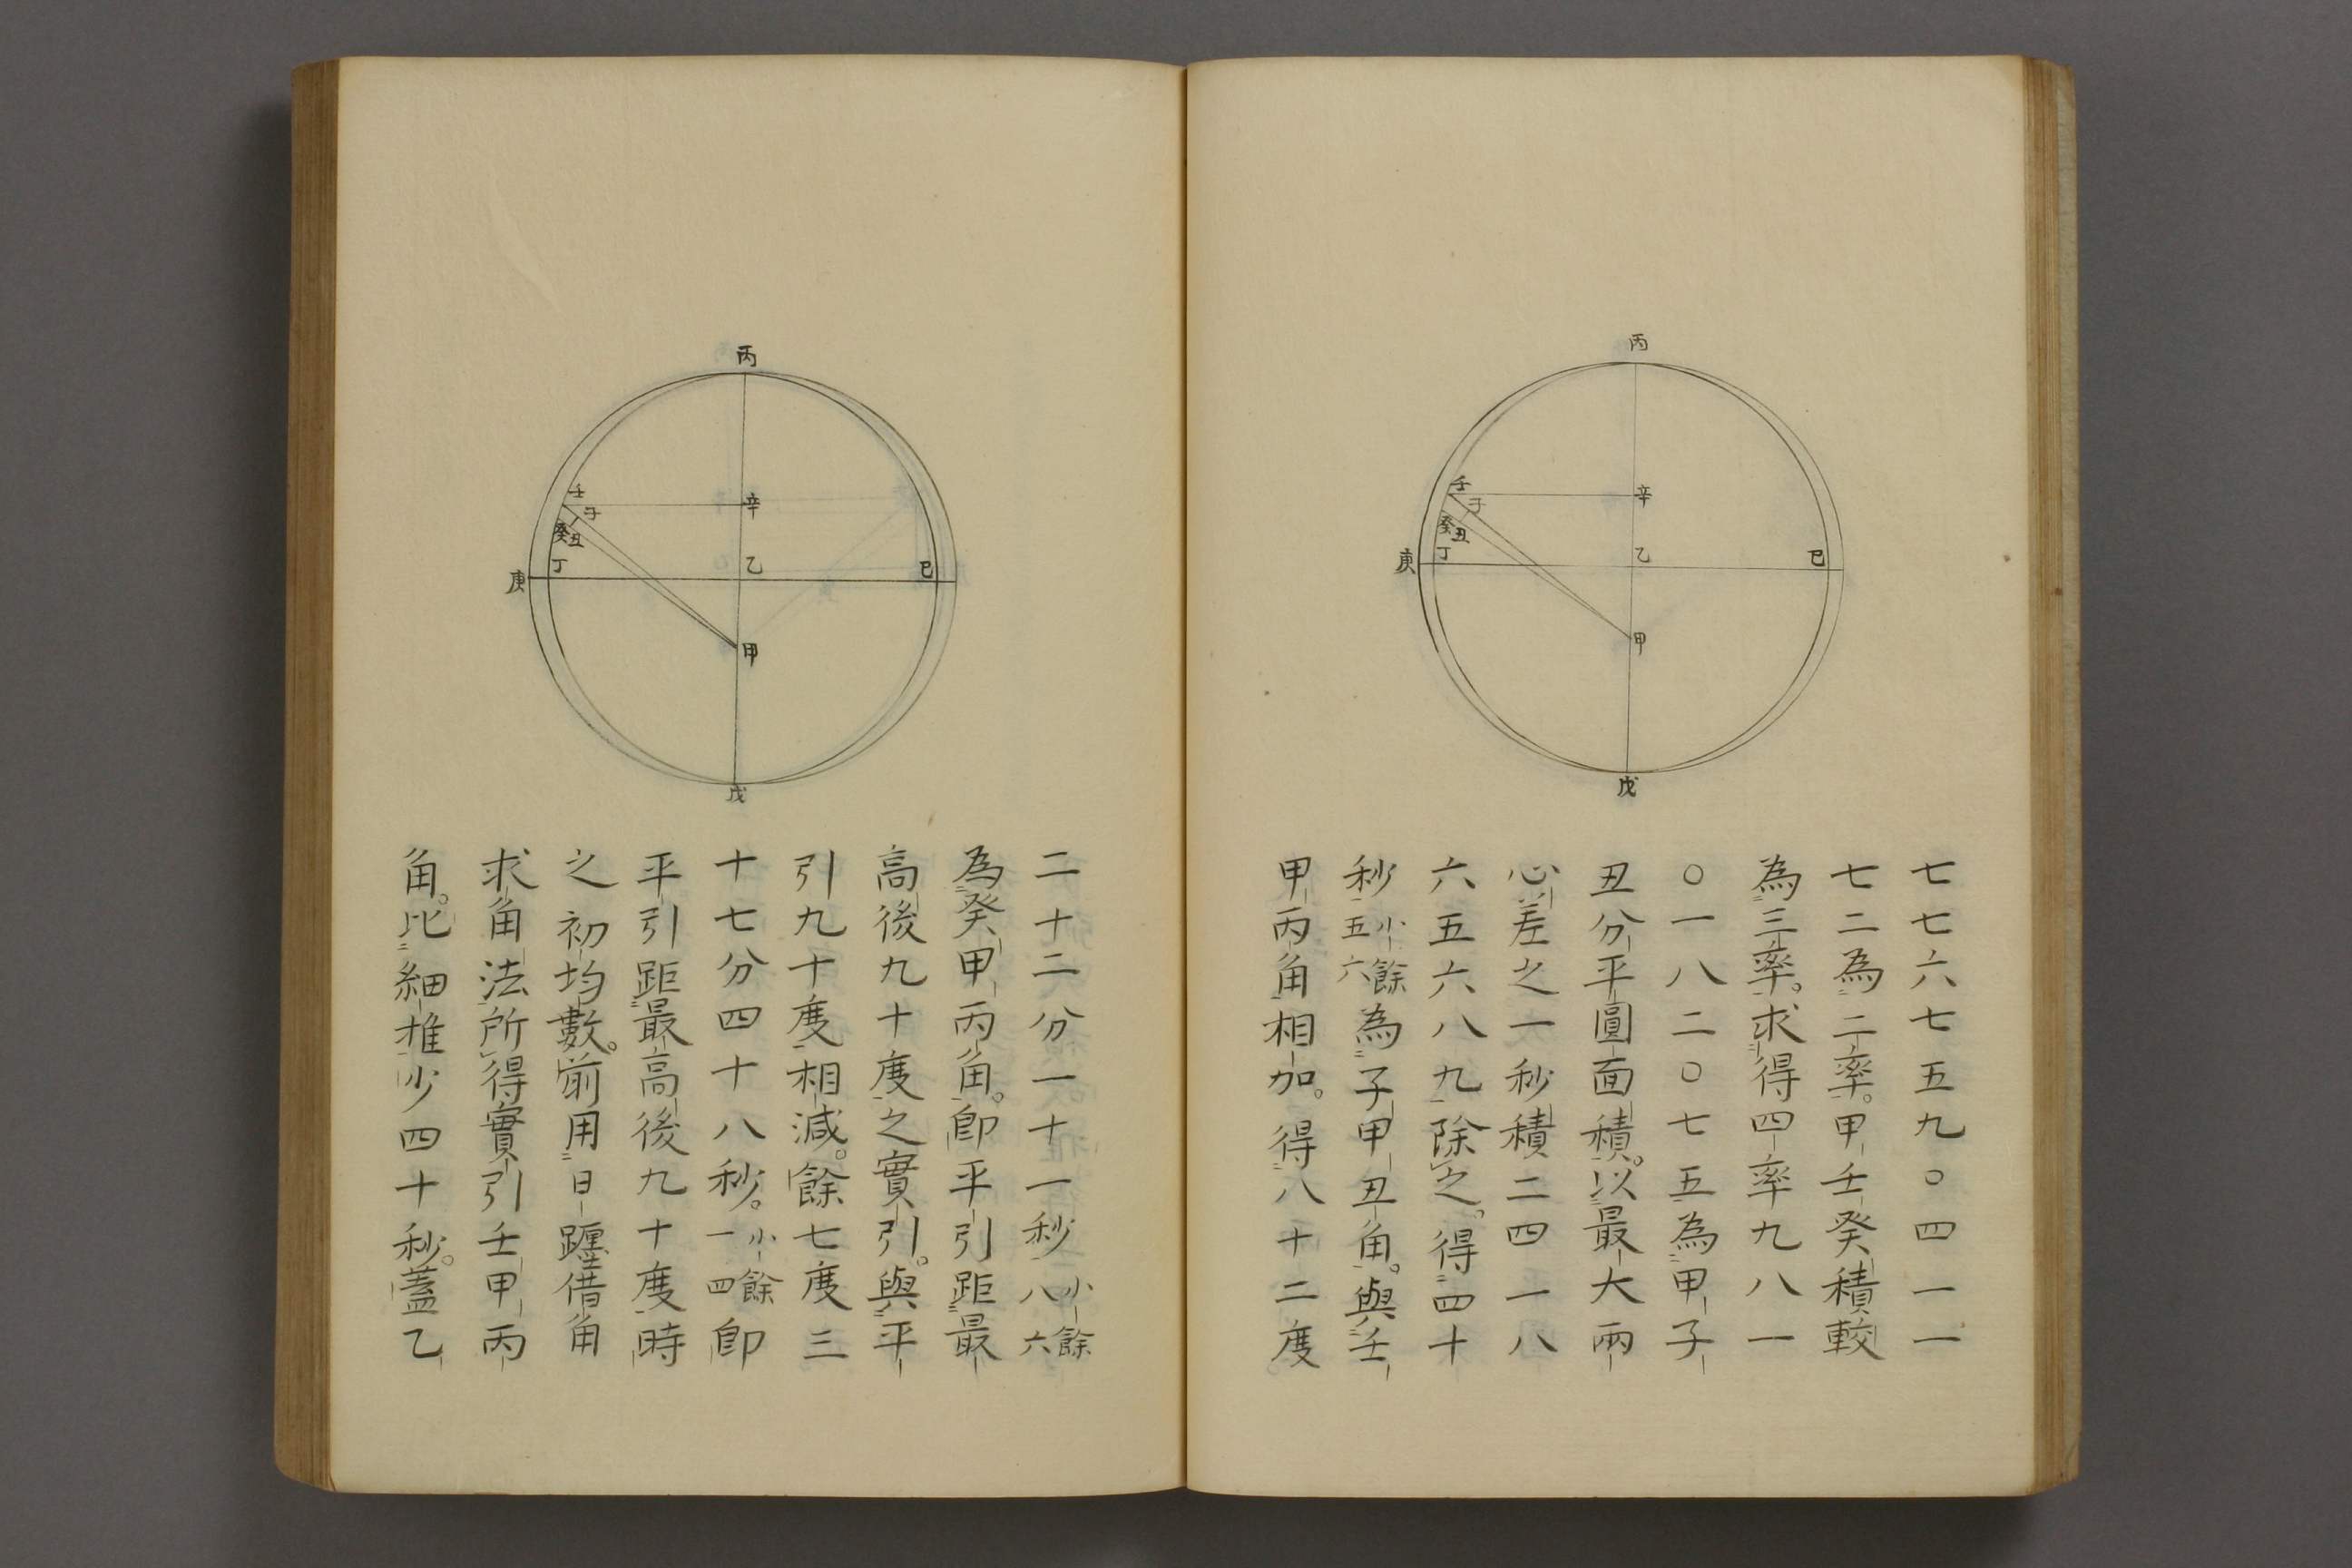 丙
壬
辛
子
癸
丑
庚
丁
乙
巳
甲
戊
七七六七五九〇四一一
七二為二率。甲壬癸積較
為三率。求得四率九八一
〇一八二〇七五為甲子
丑分平圓面積。以最大兩
心差之一秒積二四一八
六五六八九除之。得四十
秒小餘五六為子甲丑角。與壬
甲丙角相加。得八十二度
丙
壬
辛
子
癸
丑
庚
丁
乙
巳
甲
戊
二十二分一十一秒小餘八六
為癸甲丙角。卽平引距最
高後九十度之實引。與平
引九十度相減。餘七度三
十七分四十八秒。小餘一四卽
平引距最高後九十度時
之初均數。前用日躔借角
求角法所得實引壬甲丙
角。比細推少四十秒。蓋乙